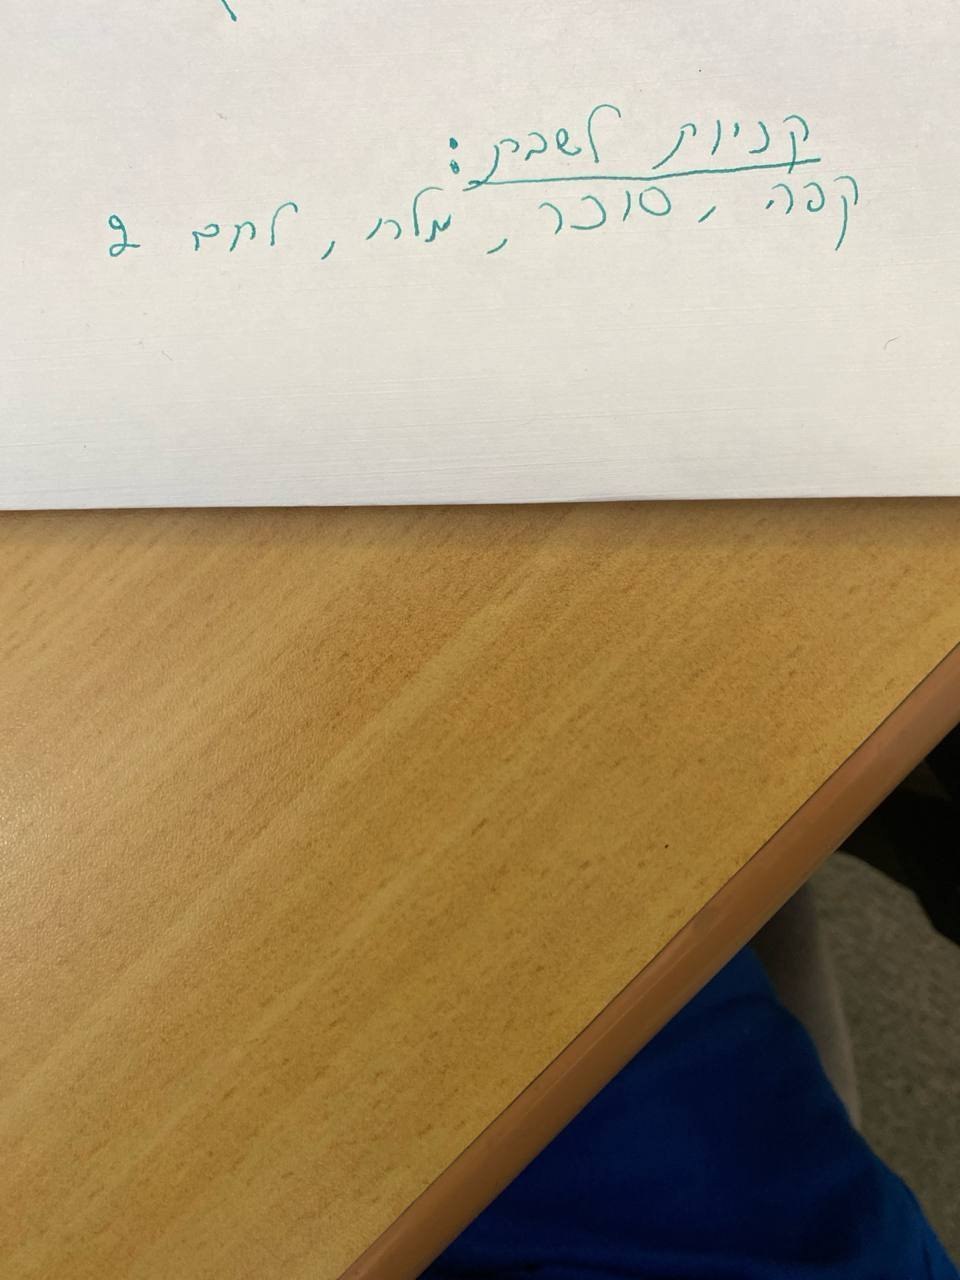 קניות לשבת:
קפה, סוכר, מלח, לחם 2